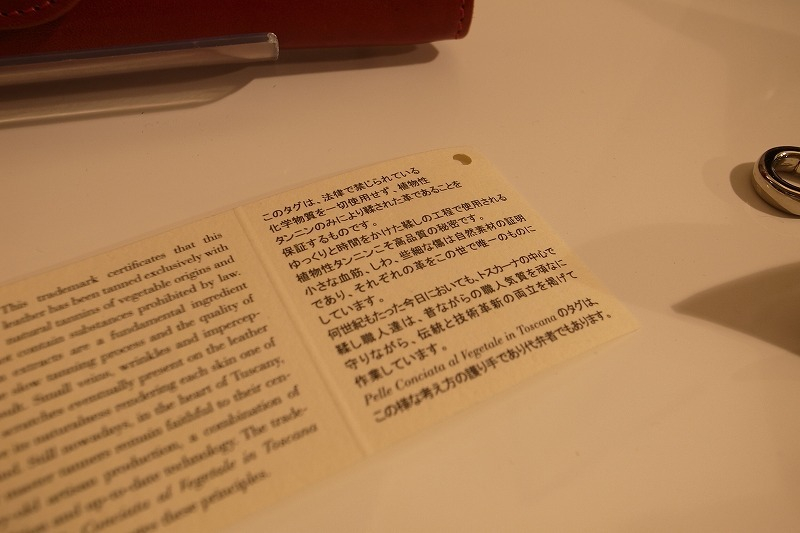 This trademark certificates that this
leather has been tanned exclusively with
natural tannins of vegetable origins and
contain substances prohibited by law.
extracts are a fundamental ingredient
slow tanning process and the quality of
Small veins, wrinkles and impercep-
scratches eventually present on the leather
its naturalness rendering each skin one of
Still nowadays, in the heart of Tuscany,
master tanners remain faithful to their cen-
artisan production, a combination of
and up-to-date technology. The trade-
Conciata al Vegetale in Toscana
these principles.
このタグは、法律で禁じられている
化学物質を一切使用せず、植物性
タンニンのみにより鞣された革であることを
保証するものです。
ゆっくりと時間をかけた鞣しの工程で使用される
植物性タンニンこそ高品質の秘密です。
小さな血筋、しわ、些細な傷は自然素材の証明
であり、それぞれの革をこの世で唯一のものに
しています。
何世紀もたった今日においても、トスカーナの中心で
鞣し職人達は、昔ながらの職人気質を頑なに
守りながら、伝統と技術革新の両立を掲げて
作業しています。
Pelle Conciata al Vegetale in Toscana のタグは、
この様な考え方の護り手であり代弁者でもあります。